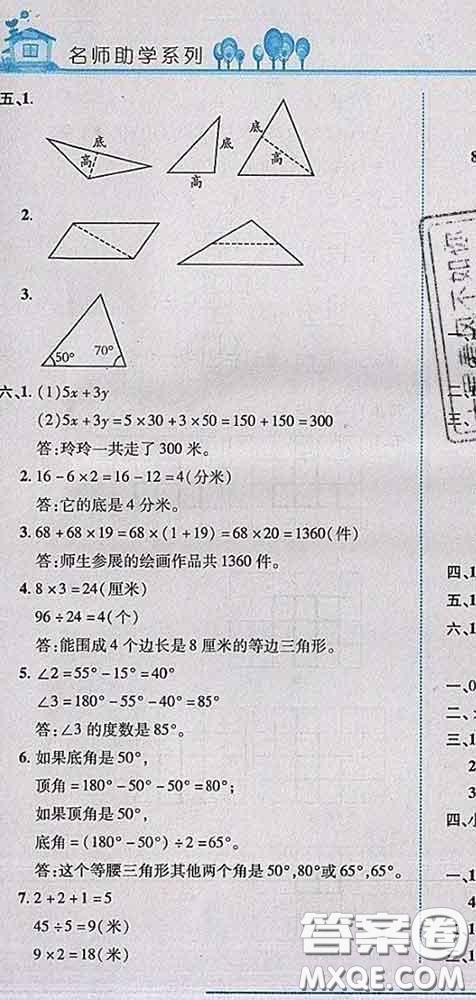 名师助学系列
五、1.
底
高
底
高
底
高
2.
3.
50°
70°
六、1. (1)5x+3y
(2)5x+3y=5×30+3×50=150+150=300
答:玲玲一共走了 300 米。
2. 16-6×2=16-12=4(分米)
答:它的底是 4 分米。
3. 68+68×19=68×(1+19)=68×20=1360(件)
答:师生参展的绘画作品共 1360 件。
4. 8×3=24(厘米)
96÷24=4(个)
答:能围成 4 个边长是 8 厘米的等边三角形。
5. ∠2=55°-15°=40°
∠3=180°-55°-40°=85°
答:∠3 的度数是 85°。
6. 如果底角是 50°,
顶角=180°-50°-50°=80°
如果顶角是 50°,
底角=(180°-50°)÷2=65°
答:这个等腰三角形其他两个角是 50°,80°或 65°,65°。
7. 2+2+1=5
45÷5=9(米)
9×2=18(米)
8
四、1
五、1
六、1
一、0
二、
三、1
2
3
四、小
一、1
4
二、1
三、1
答案圈
MXQE.COM